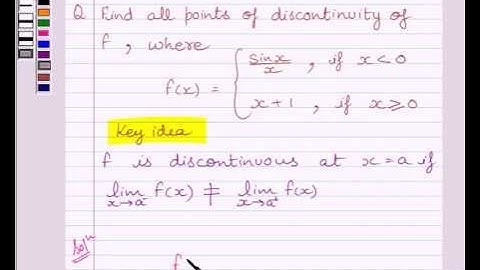 Q Find all points of discontinuity of
f, where
f(x) = { sin x / x , if x < 0
x+1 , if x ≥ 0
Key idea
f is discontinuous at x = a if
lim x→a⁻ f(x) ≠ lim x→a⁺ f(x)
Solⁿ
f